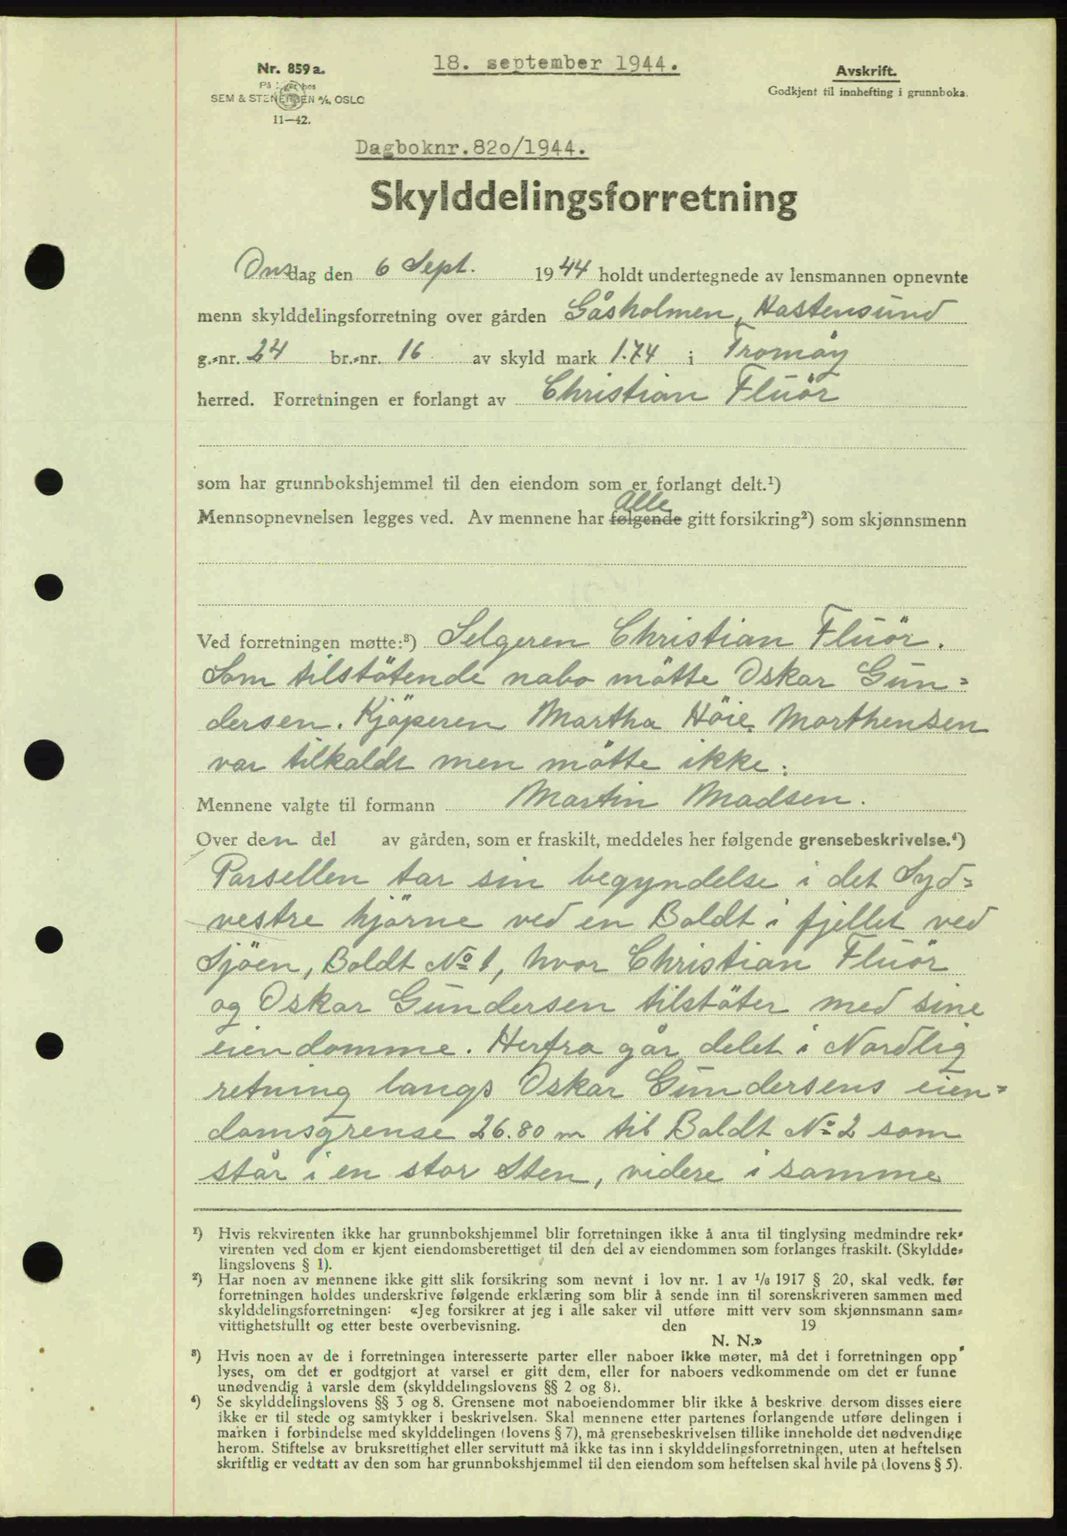 18. september 1944.
Nr. 859a.
Avskrift.
SEM & STENERSEN A/S, OSLO
Godkjent til innhefting i grunnboka.
11—42.
Dagboknr.820/1944.
Skylddelingsforretning
Onsdag den 6 Sept. 1944 holdt undertegnede av lensmannen opnevnte
menn skylddelingsforretning over gården Gåsholmen, Hastensund
g.-nr. 24 br.-nr. 16 av skyld mark 1.74 i Tromøy
herred. Forretningen er forlangt av Christian Fluör
som har grunnbokshjemmel til den eiendom som er forlangt delt.¹)
alle
Mennsopnevnelsen legges ved. Av mennene har følgende gitt forsikring²) som skjønnsmenn
Ved forretningen møtte:³) Selgeren Christian Fluör.
Som tilstötende nabo mötte Oskar Gun=
dersen. Kjöperen Martha Höie Morthensen
var tilkaldt men mötte ikke.
Mennene valgte til formann Martin Madsen.
Over den del av gården, som er fraskilt, meddeles her følgende grensebeskrivelse.⁴)
Parsellen tar sin begyndelse i det Syd=
vestre hjörne ved en Boldt i fjellet ved
Sjöen, Boldt No 1, hvor Christian Fluör
og Oskar Gundersen tilstöter med sine
eiendomme. Herfra går delet i Nordlig
retning langs Oskar Gundersens eien=
domsgrense 26.80 m til Boldt No 2 som
står i en stor Sten, videre i samme
¹) Hvis rekvirenten ikke har grunnbokshjemmel blir forretningen ikke å anta til tinglysing medmindre rek-
virenten ved dom er kjent eiendomsberettiget til den del av eiendommen som forlanges fraskilt. (Skyldde-
lingslovens § 1).
²) Har noen av mennene ikke gitt slik forsikring som nevnt i lov nr. 1 av 1/6 1917 § 20, skal vedk. før
forretningen holdes underskrive følgende erklæring som blir å sende inn til sorenskriveren sammen med
skylddelingsforretningen: «Jeg forsikrer at jeg i alle saker vil utføre mitt verv som skjønnsmann sam-
vittighetsfullt og etter beste overbevisning. den 19
N. N.»
³) Hvis noen av de i forretningen interesserte parter eller naboer ikke møter, må det i forretningen opp
lyses, om det er godtgjort at varsel er gitt dem, eller for naboers vedkommende om det er funne
unødvendig å varsle dem (skylddelingslovens §§ 2 og 8).
⁴) Se skylddelingslovens §§ 3 og 8. Grensene mot naboeiendommer blir ikke å beskrive dersom disses eiere
ikke er til stede og samtykker i beskrivelsen. Skal mennene etter partenes forlangende utføre delingen i
marken i forbindelse med skylddelingen (lovens § 7), må grensebeskrivelsen tillike inneholde det nødvendige
herom. Stiftelse av bruksrettighet eller servitutt må ikke tas inn i skylddelingsforretningen, uten at heftelsen
skriftlig er vedtatt av den som har grunnbokshjemmel til den eiendom som heftelsen skal hvile på (lovens § 5).